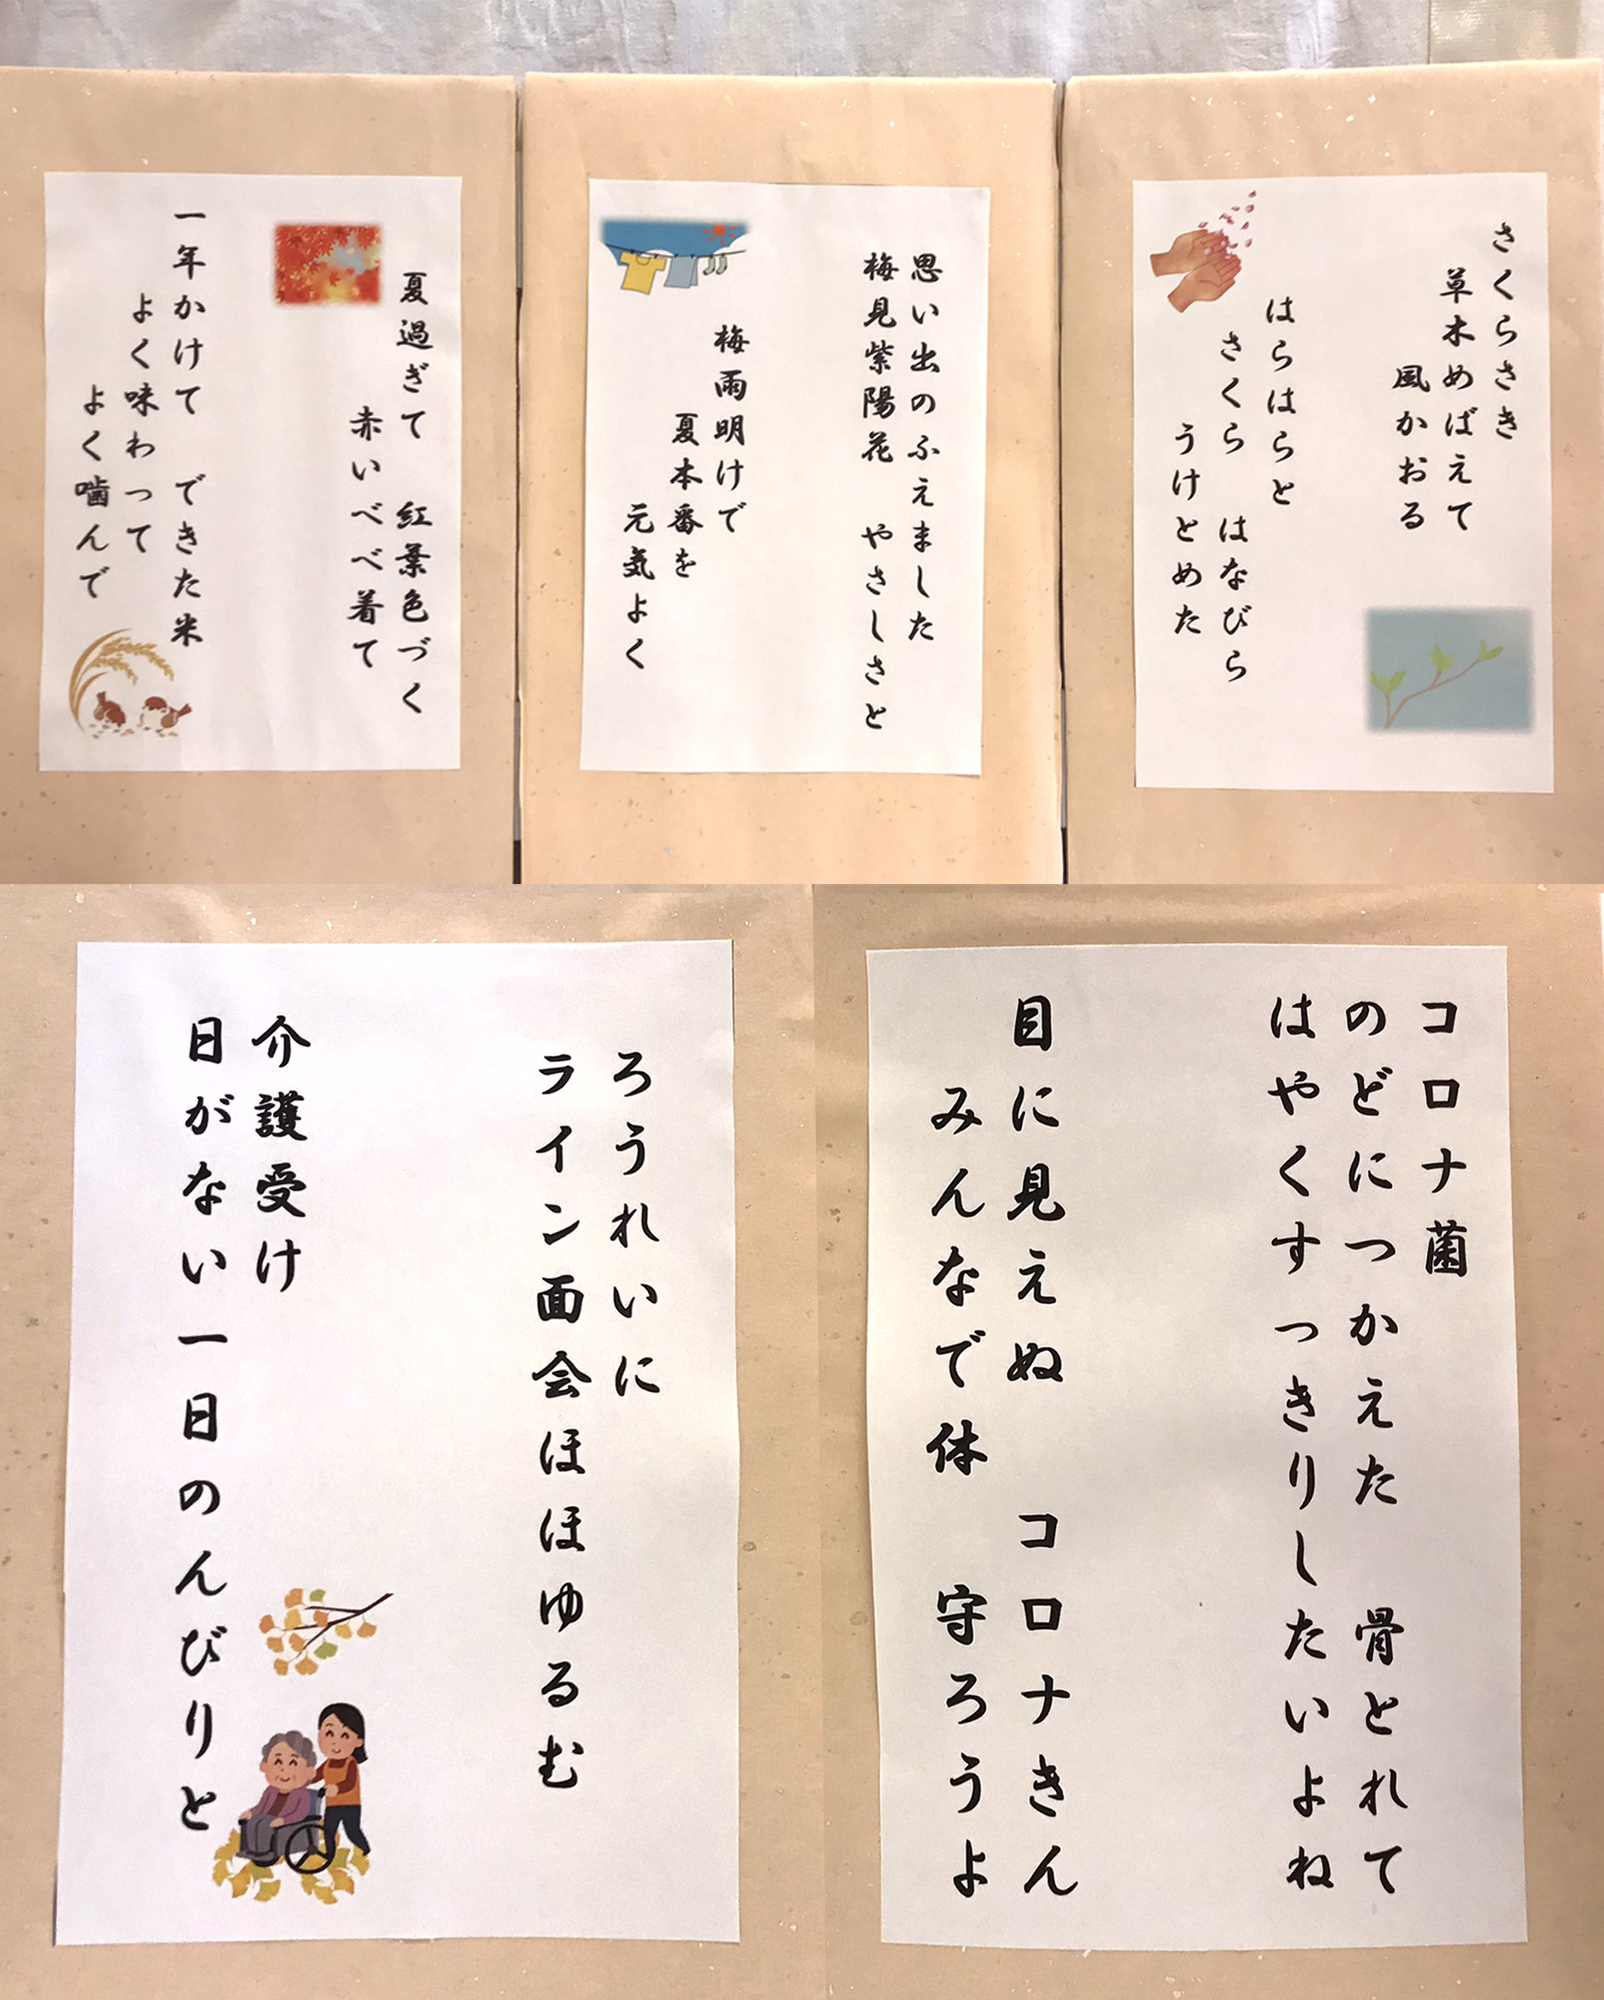 さくらさき
草木めばえて
風かおる
はらはらと
さくら　はなびら
うけとめた
思い出のふえました
梅見紫陽花　やさしさと
梅雨明けで
夏本番を
元気よく
夏過ぎて　紅葉色づく
赤いべべ着て
一年かけて　できた米
よく味わって
よく噛んで
コロナ菌
のどにつかえた　骨とれて
はやくすっきりしたいよね
目に見えぬ　コロナきん
みんなで体　守ろうよ
ろうれいに
ライン面会ほほゆるむ
介護受け
日がない一日のんびりと